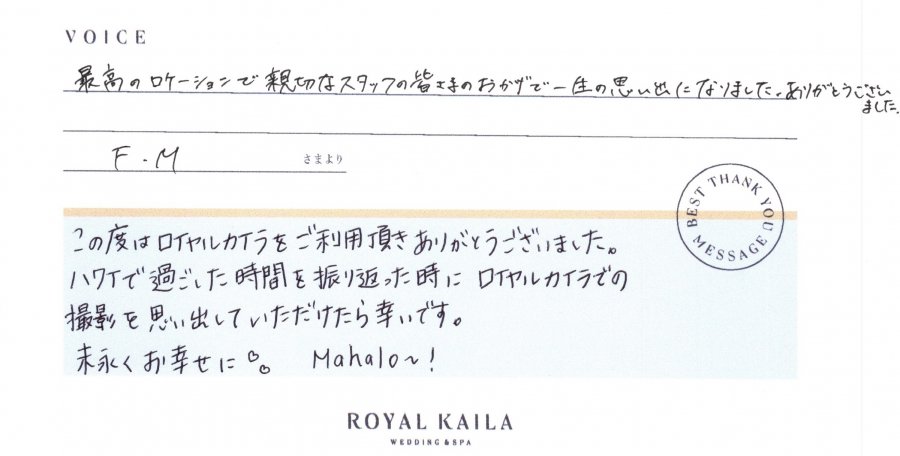 VOICE
最高のロケーションで親切なスタッフの皆さまのおかげで一生の思い出になりました。ありがとうござい
ました。
F.M さまより
BEST THANK YOU MESSAGE
この度はロイヤルカイラをご利用頂きありがとうございました。
ハワイで過ごした時間を振り返った時に ロイヤルカイラでの
撮影を思い出していただけたら幸いです。
末永くお幸せに Mahalo~!
ROYAL KAILA
WEDDING & SPA